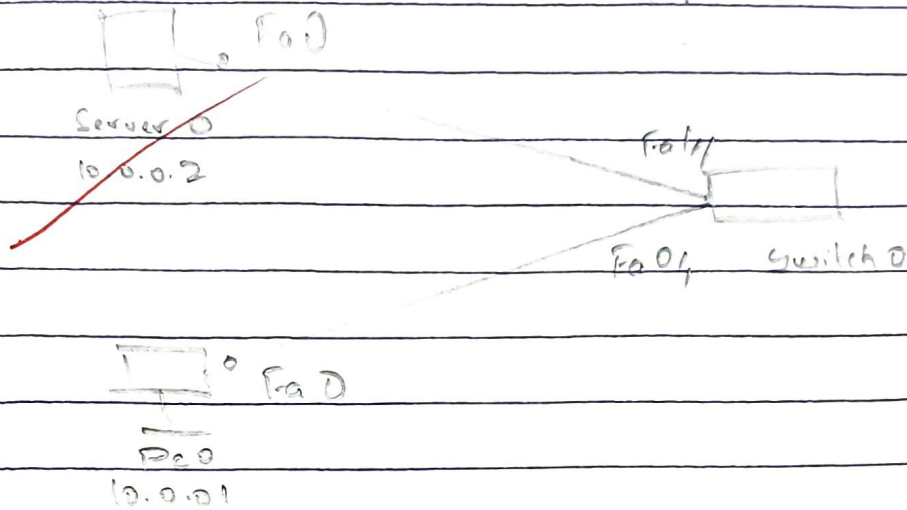 Fa0
Server 0
10.0.0.2
Fa1/1
Fa0/1
Switch 0
Fa0
Pc 0
10.0.01